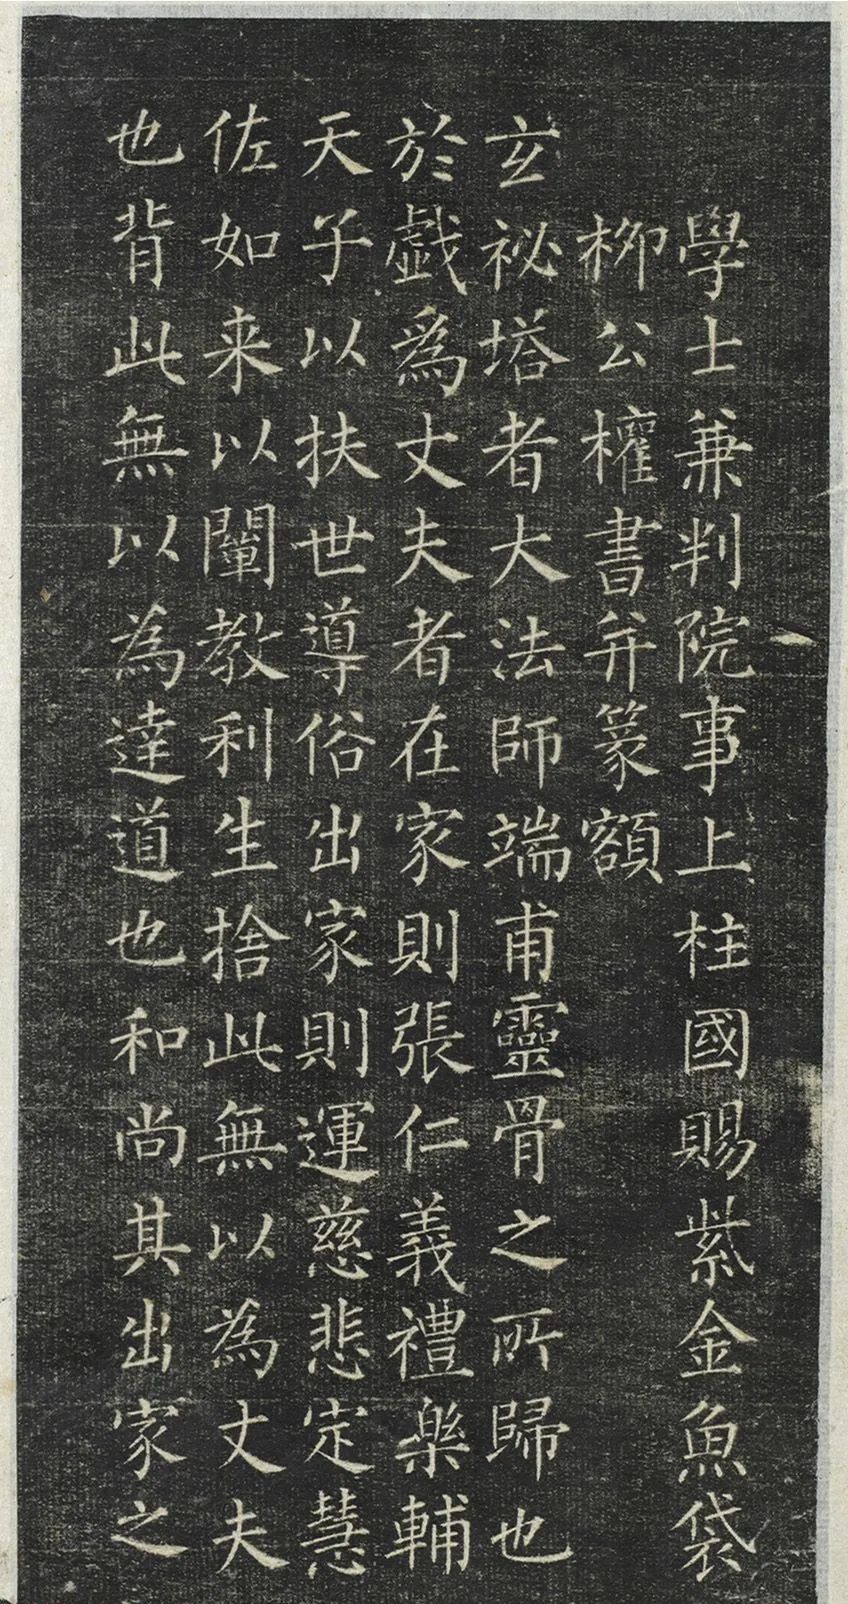 學士兼判院事上柱國賜紫金魚袋
柳公權書并篆額
玄祕塔者大法師端甫靈骨之所歸也
於戲為丈夫者在家則張仁義禮樂輔
天子以扶世導俗出家則運慈悲定慧
佐如来以闡教利生捨此無以為丈夫
也背此無以為達道也和尚其出家之